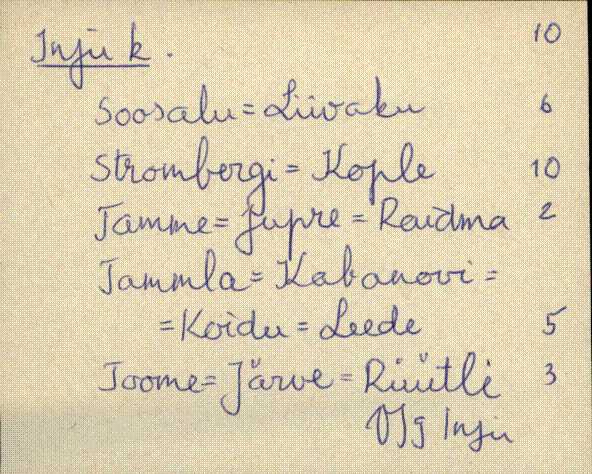 Inju k. 10
Soosalu = Liivaku 6
Strombergi = Kople 10
Tamme = Jupre = Raudma 2
Tammla = Kabanovi =
= Koidu = Leede 5
Toome = Järve = Rüütli 3
Vjg Inju